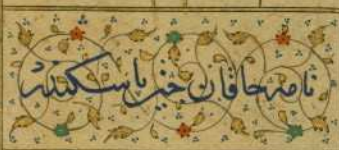 نامه خاقان چین با سکندر